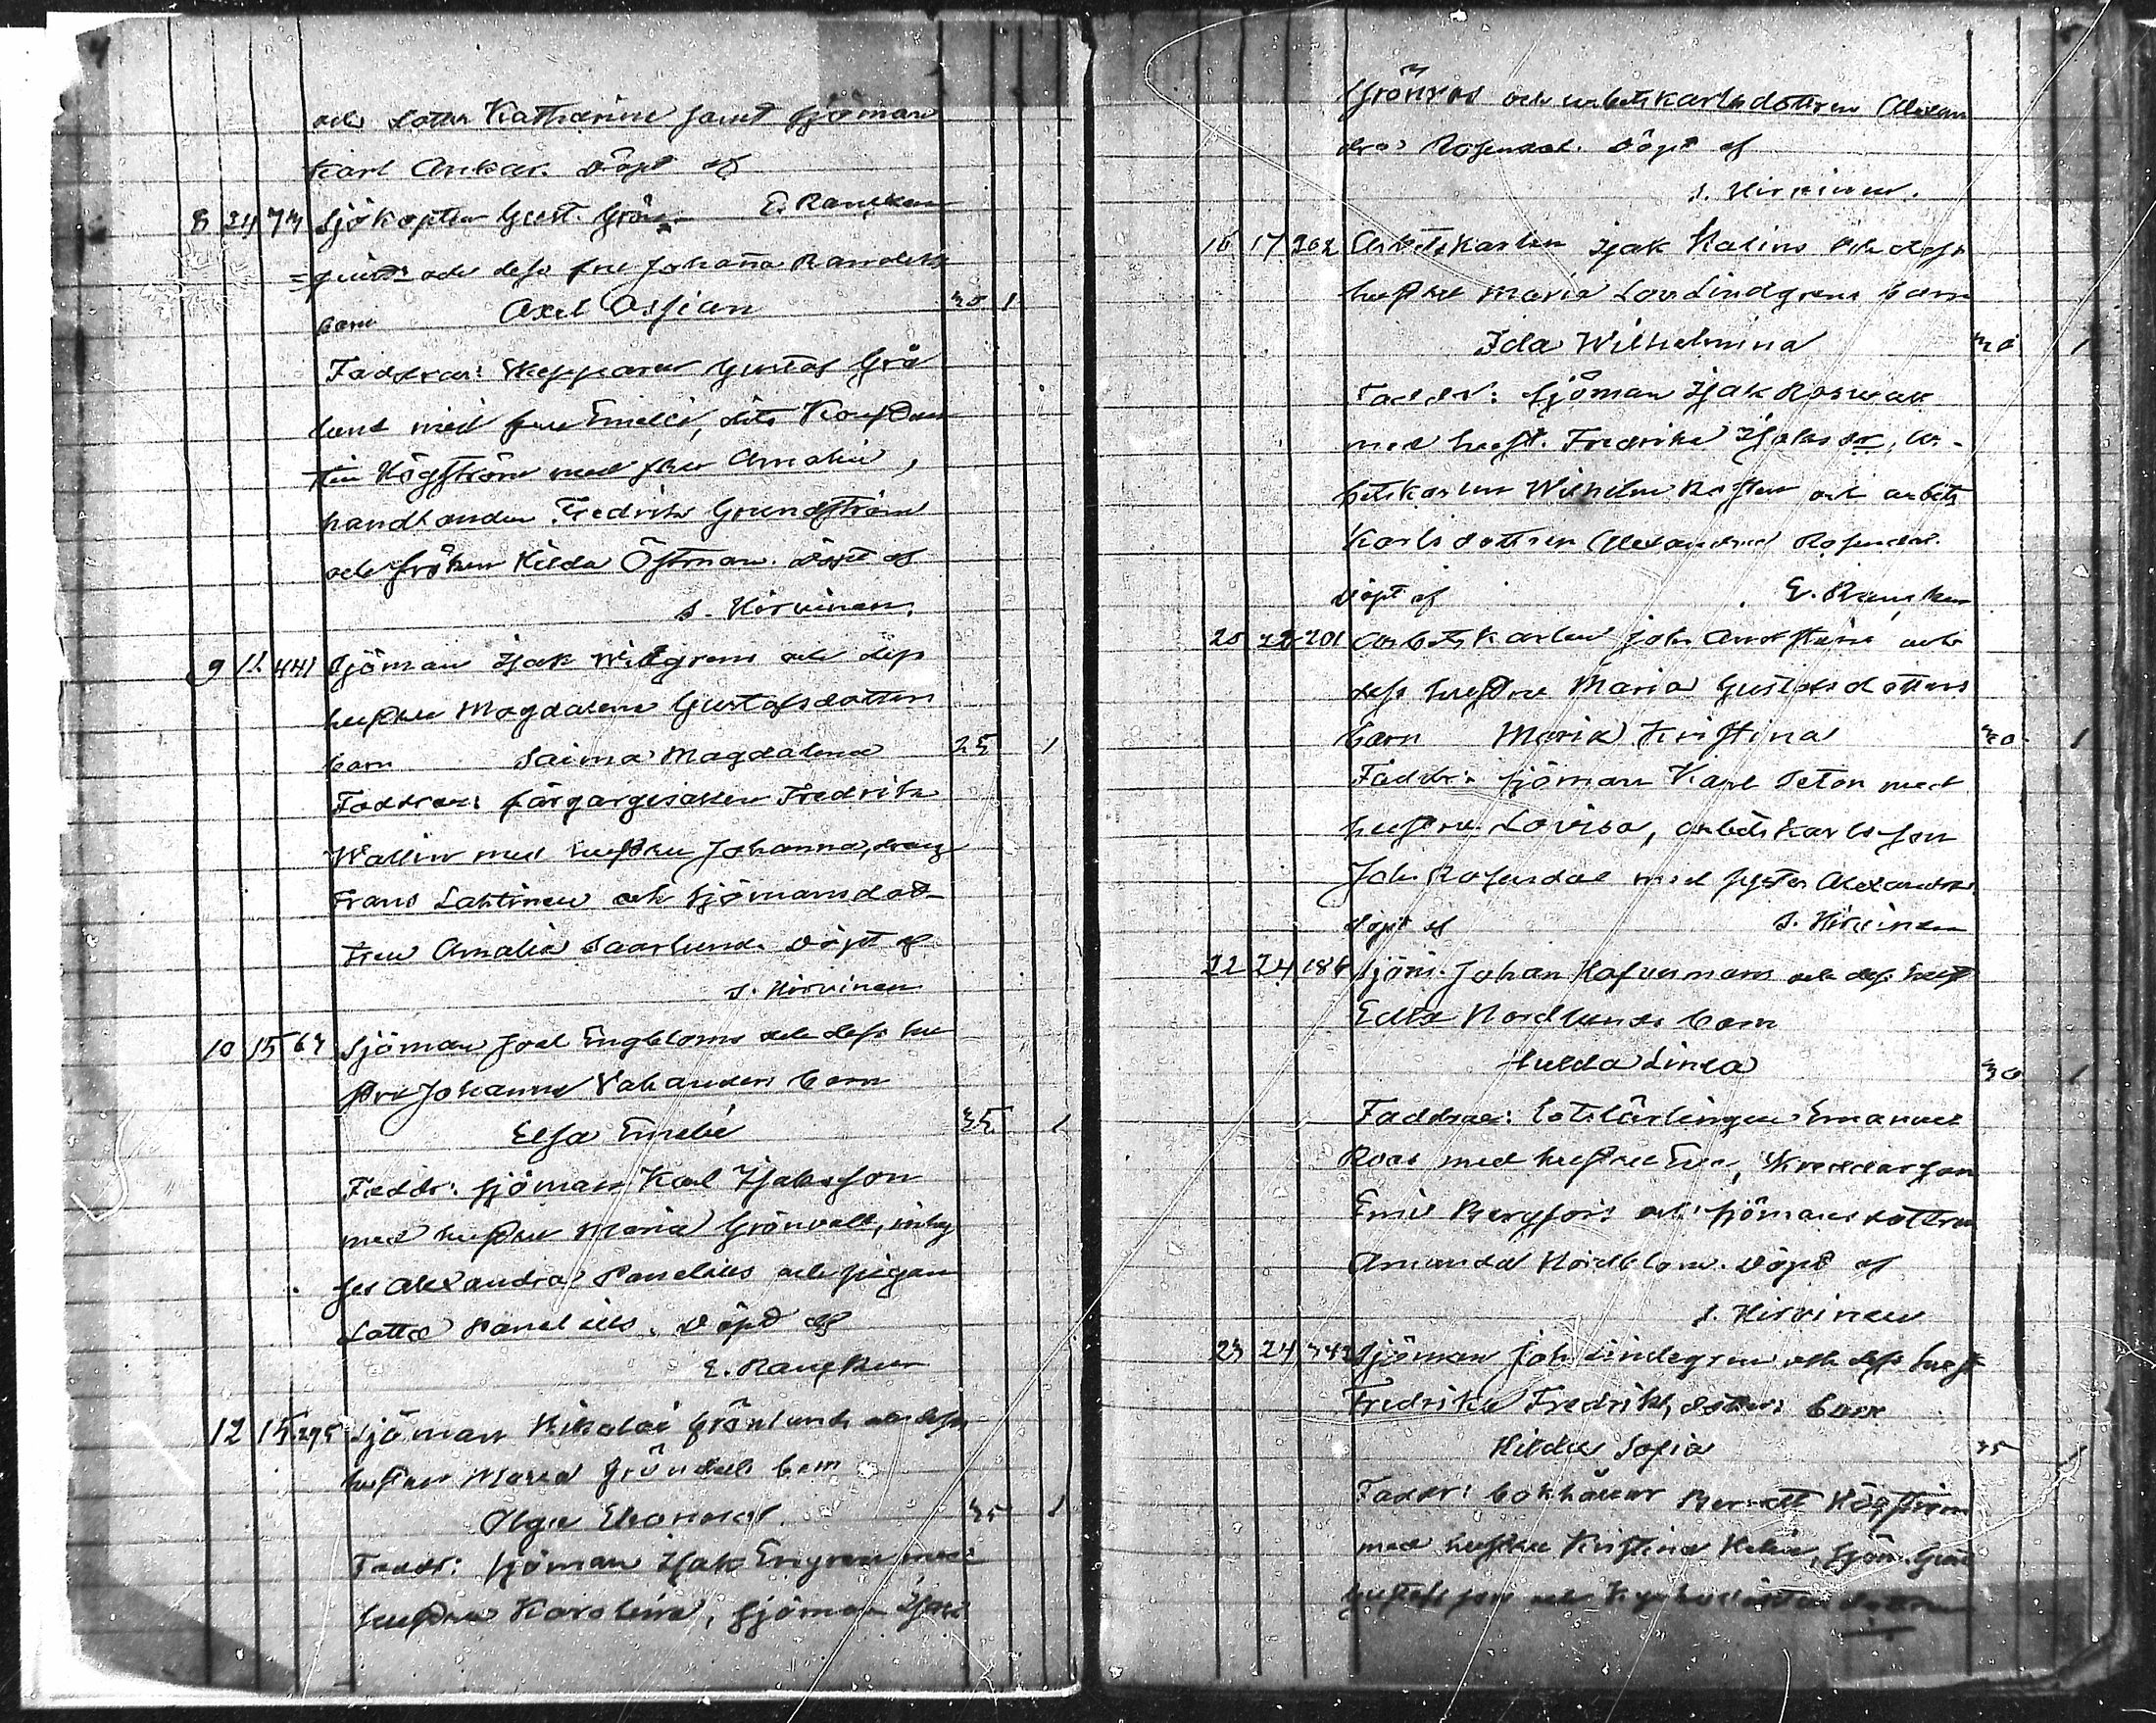 och Lotta Katharina samt sjöman
Karl Ankar. Döpt af
E. Rancken
8 24 74 Sjökapten Gust. Grön=
=qvists och dess fru Johanna Randelis
barn Axel Ossian 30 1
Faddrar: Skepparen Gustaf Grö
lund med fru Emelie, dito Konstan
tin Högström med fru Amalia,
handlanden Fredrik Grundström
och fröken Hilda Östman. Döpt af
J. Hirvinen.
9 12 441 Sjöman Isak Widgrens och dess
hustru Magdalena Gustafsdotters
barn Saima Magdalena 25 1
Faddrar: färgargesällen Fredrik
Wallin med hustru Johanna, dräng
Frans Lahtinen och sjömansdot-
tren Amalia Saarlund. Döpt af
J. Hirvinen
10 15 67 Sjöman Joel Engbloms och dess hu
stru Johanna Vahanders barn
Elsa Emelié 35 1
Faddr: sjöman Karl Isaksson
med hustru Maria Grönvall, inhy
ses Alexandra Panelius och pigan
Lotta Panelius. Döpt af
E. Rancken
12 15 295 Sjöman Nikolai Grönlunds och dess
hustru Maria Gröndals barn
Olga Eleonora. 35 1
Faddr: sjöman Isak Engren med
hustru Karolina, sjöman Isak
Grönros och arbetskarlsdottren Alexan
dra Rosendal. Döpt af
J. Hirvinen.
16 17 262 Arbetskarlen Isak Kalins och dess
hustru Maria Lov. Lindgrens barn
Ida Wilhelmina 30 1
Faddr: sjöman Isak Rosvall
med hust. Fredrika Isaksdr, ar-
betskarlen Wilhelm och arbets
karlsdottren Alexandra Rosendal.
Döpt af E. Rancken
20 22 201 Arbetskarlen Joh. och
dess hustru Maria Gustafsdotters
barn Maria Kristina 30 1
Faddr: sjöman Karl Peton med
hustru Lovisa, arbetskarlsson
Joh. Rosendal med syster Alexandra
Döpt af J. Hirvinen
22 24 186 Sjöm. Johan Hafvermans och dess hust
Edla Nordlunds barn
Hulda Linea 30 1
Faddrar: Lotslärlingen Emanuel
Roos med hustru Eva, skräddarson
Emil Bergfors och sjömansdottren
Amanda Nordblom. Döpt af
J. Hirvinen
23 24 342 Sjöman Joh. Lindegrens och dess hust
Fredrika Fredriksdotters barn
Hilda Sofia 35 1
Faddr: bokhållar Berndt Högström
med hustru Kristina Helena, sjöm. Gust
Gustafsson och dottren